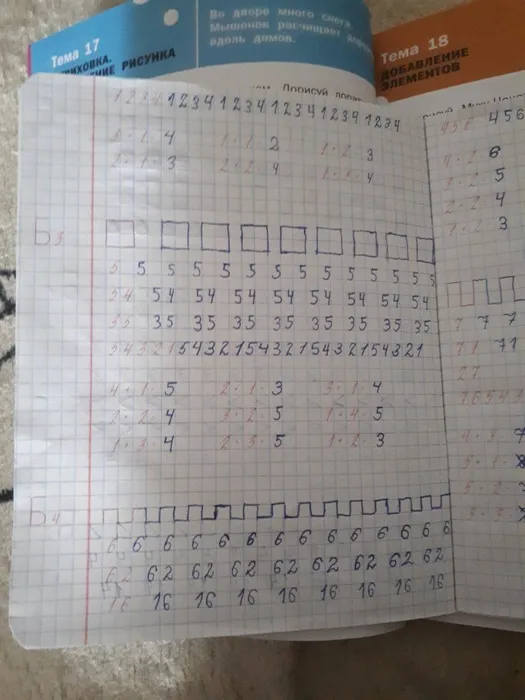 Тема 17
ШТРИХОВКА.
РИСУНКА
Во дворе много снега.
Мышонок расчищает
вдоль домов.
Тема 18
ДОБАВЛЕНИЕ
ЭЛЕМЕНТОВ
Дорисуй
1 2 3 4 1 2 3 4 1 2 3 4 1 2 3 4 1 2 3 4 1 2 3 4
1 · 1 · 2
1 · 2 · 3
2 · 1 · 3 2 · 2 · 4
Б3
5 5 5 5 5 5 5 5 5 5 5 5 5
54 54 54 54 54 54 54 54 54
35 35 35 35 35 35 35 35 35
5 4 3 2 1 5 4 3 2 1 5 4 3 2 1 5 4 3 2 1 5 4 3 2 1
4 · 1 · 5 2 · 1 · 3 3 · 1 · 4
2 · 2 · 4 3 · 2 · 5 1 · 4 · 5
1 · 3 · 4 2 · 3 · 5 1 · 2 · 3
Б4
6 6 6 6 6 6 6 6 6 6 6 6 6
62 62 62 62 62 62 62 62 62
16 16 16 16 16 16 16 16 16
456 456
4 · 2 6
3 · 2 5
2 · 2 4
3
7 7 7
71 71
27
7 6 5 4 3